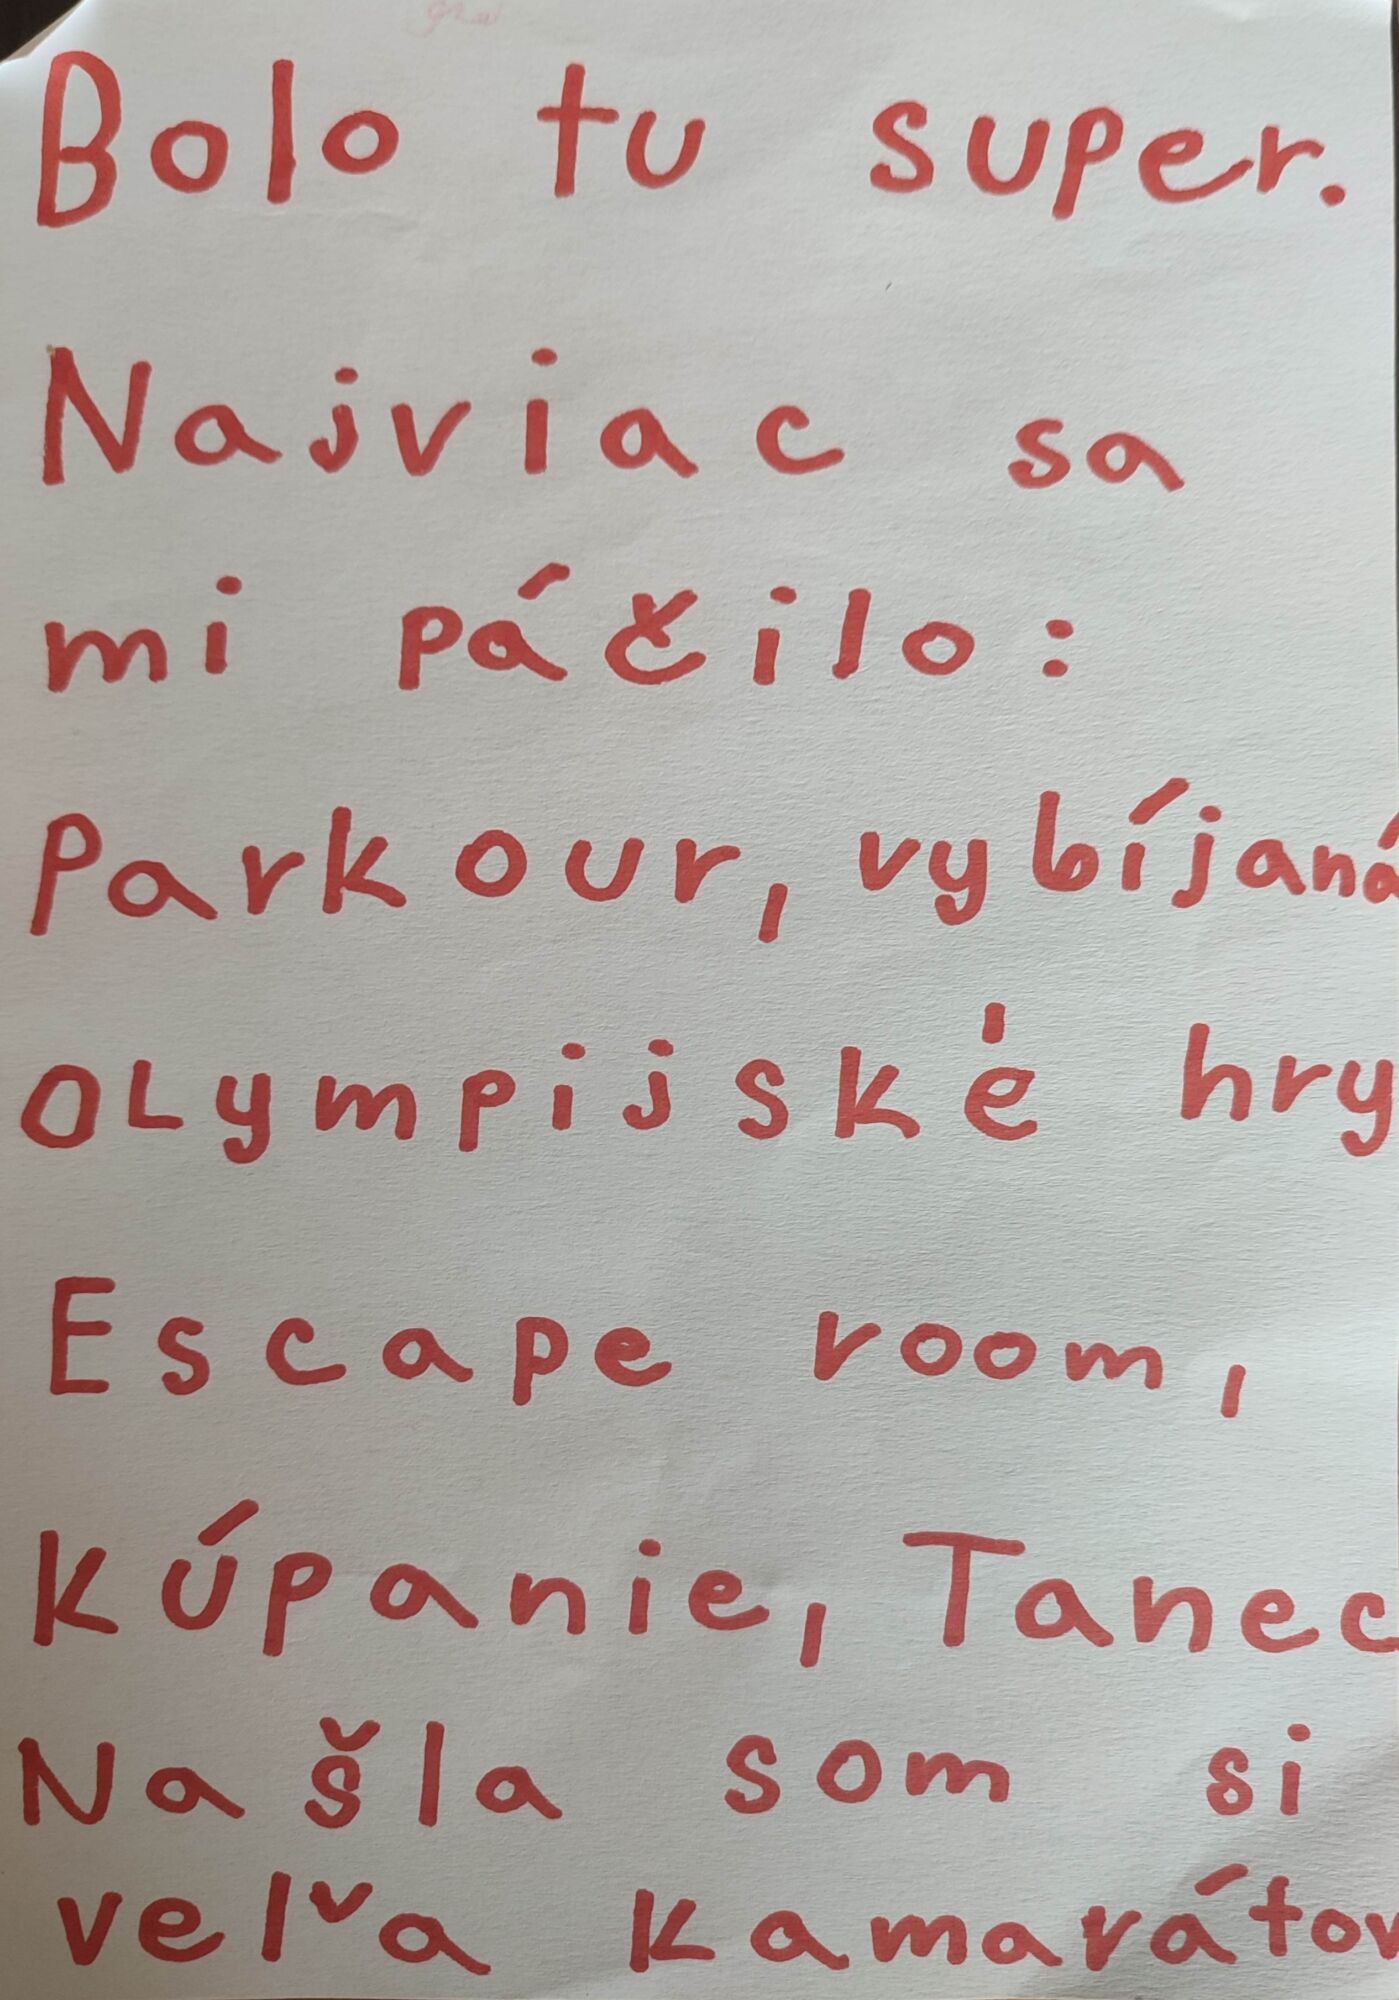 Bolo tu super.
Najviac sa
mi páčilo:
Parkour, vybíjaná
OLympijské hry
Escape room,
Kúpanie, Tanec
Našla som si
veľa kamarátov